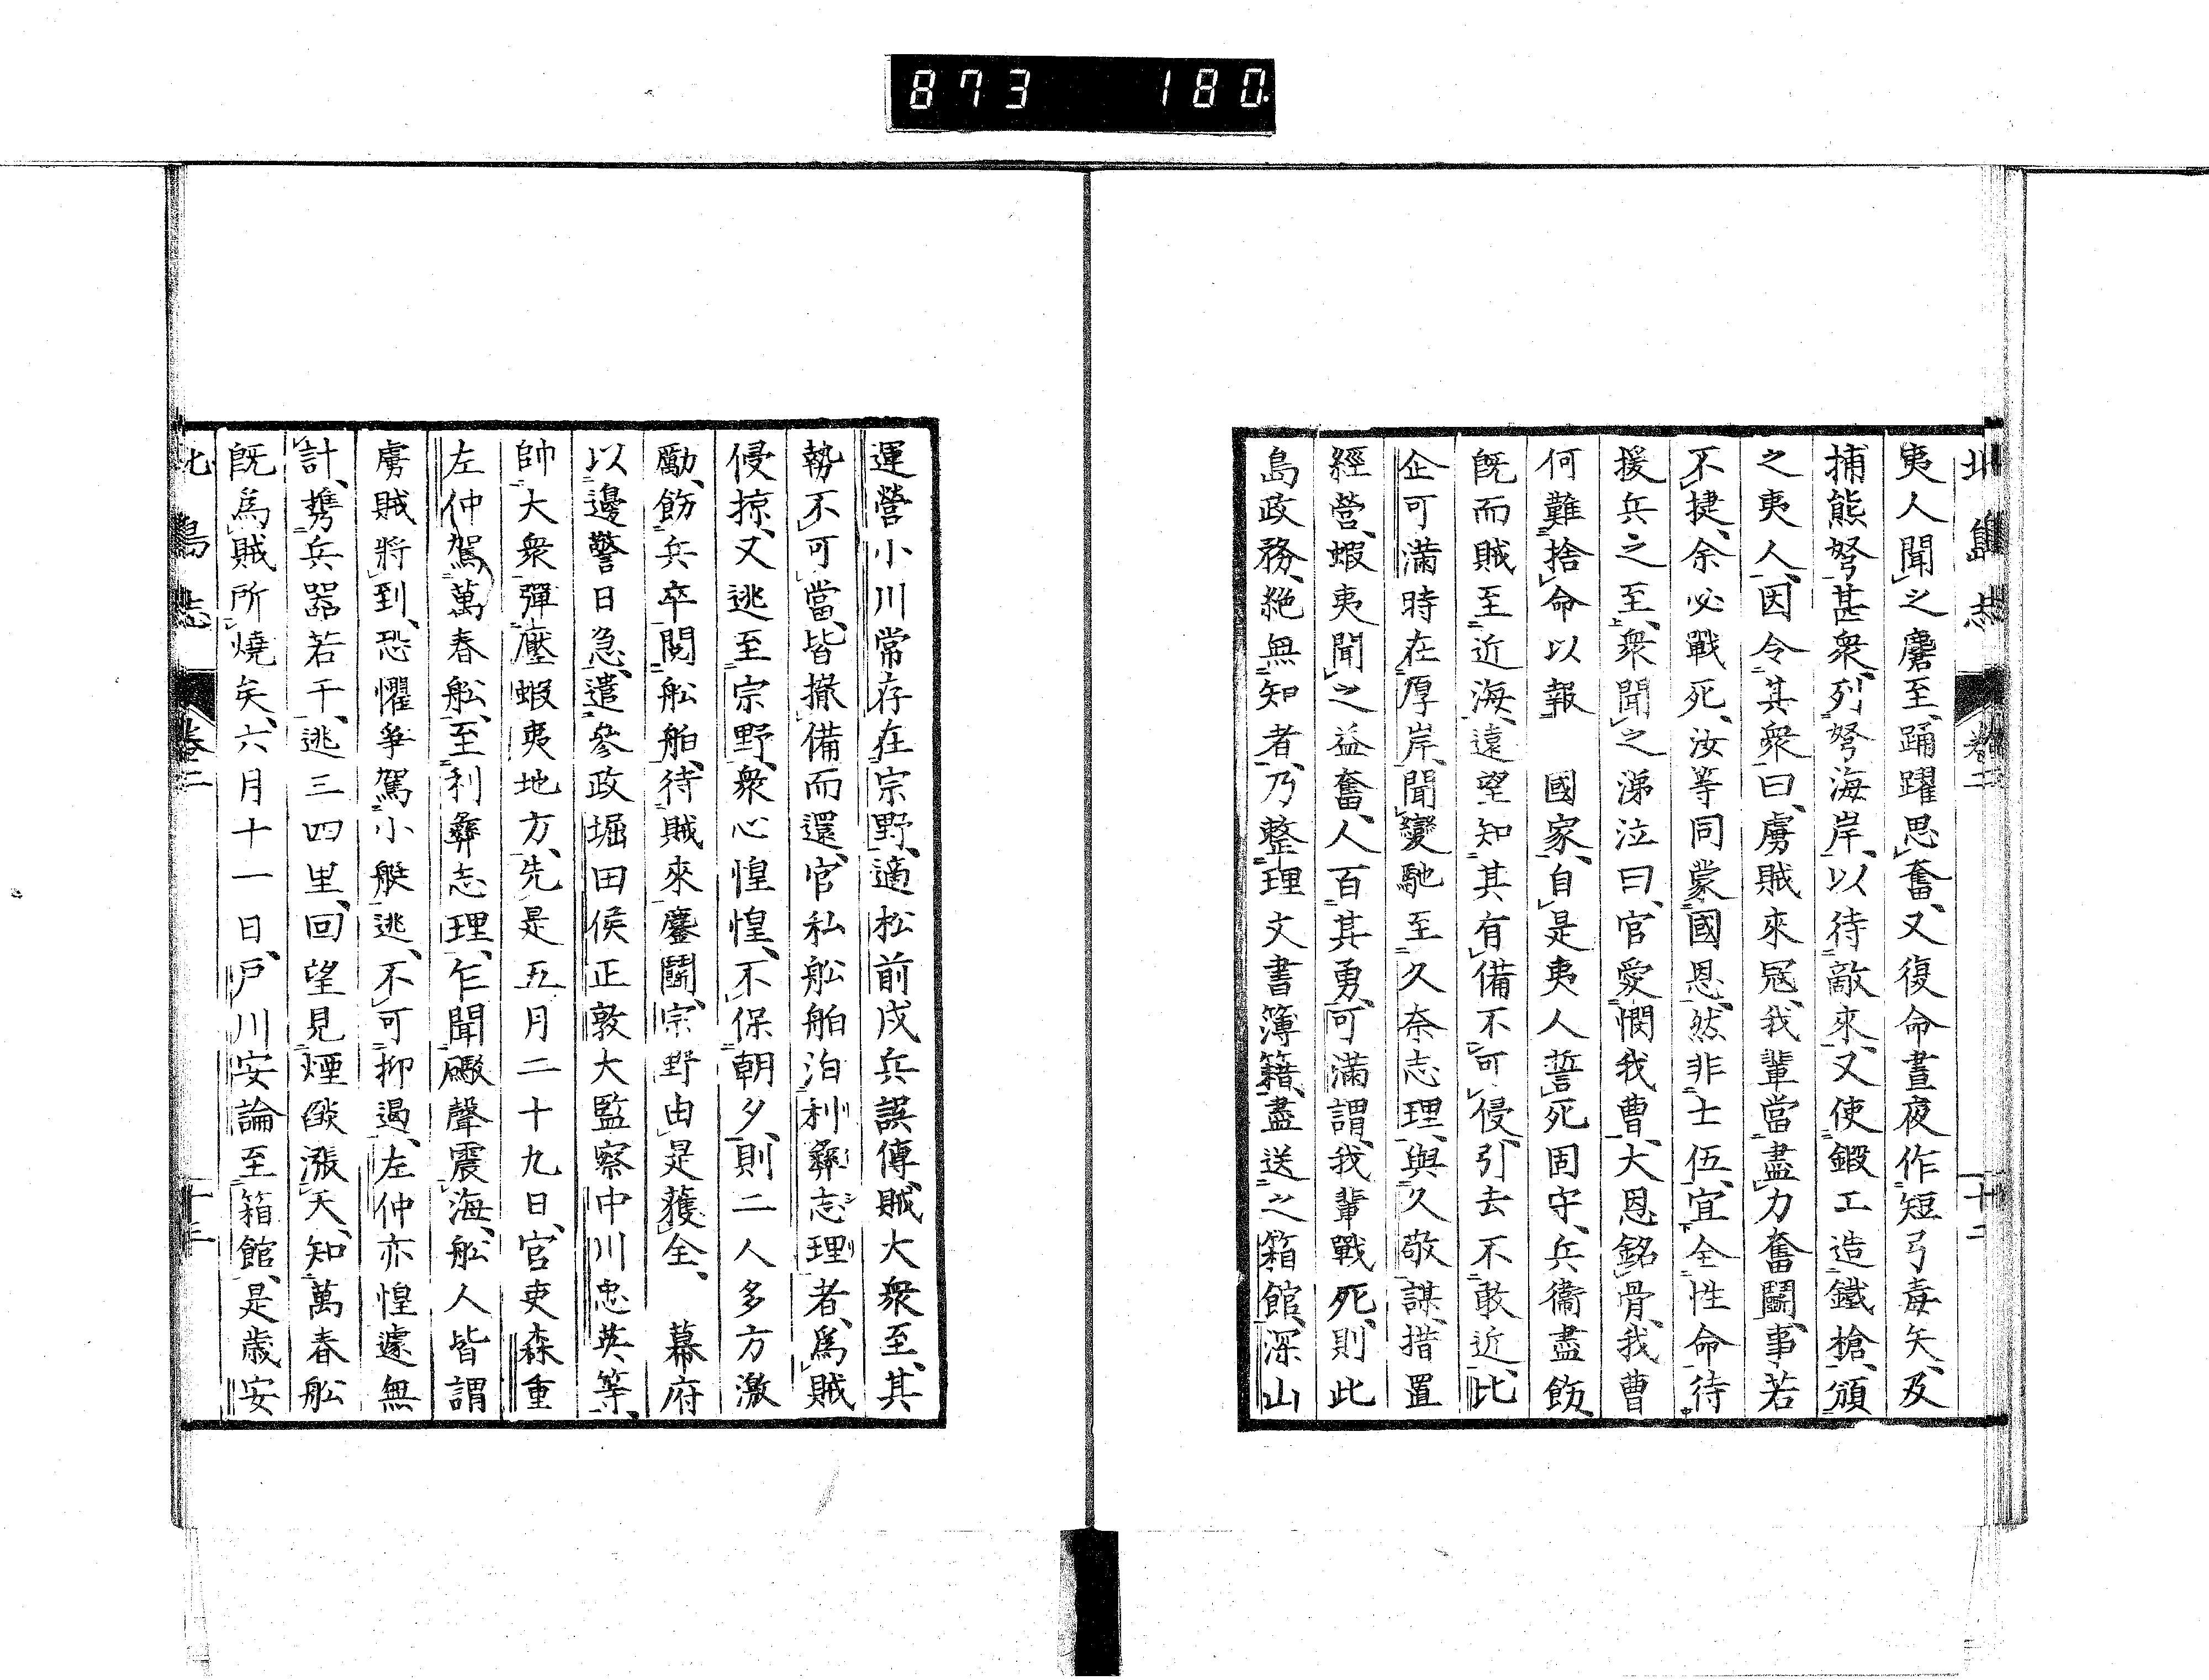 873 180
北島志 卷二 十二
夷人聞之麕至、踊躍思奮、又復命晝夜作短弓毒矢、及
捕熊弩甚衆、列弩海岸、以待敵來、又使鍛工造鐵槍、頒
之夷人、因令其衆曰、虜賊來冦、我輩當盡力奮鬪、事若
不捷、余必戰死、汝等同蒙國恩、然非士伍、宜全性命待
援兵之至、衆聞之涕泣曰、官愛憫我曹、大恩銘骨、我曹
何難捨命以報　國家、自是夷人誓死固守、兵衞盡飭、
既而賊至近海、遠望知其有備不可侵、引去不敢近、比
企可滿時在厚岸、聞變馳至久奈志理、與久敬謀、措置
經營、蝦夷聞之益奮、人百其勇、可滿謂、我輩戰死、則此
島政務、絶無知者、乃整理文書簿籍、盡送之箱館、深山
運營小川常存在宗野、適松前戍兵誤傳、賊大衆至、其
勢不可當、皆撤備而還、官私舩舶泊利彝志理者、爲賊
侵掠、又逃至宗野、衆心惶惶、不保朝夕、則二人多方激
勵、飭兵卒、閲舩舶、待賊來鏖鬪、宗野由是獲全、　幕府
以邊警日急、遣參政堀田侯正敦大監察中川忠英等、
帥大衆彈壓蝦夷地方、先是五月二十九日、官吏森重
左仲駕萬春舩、至利彝志理、乍聞礮聲震海、舩人皆謂
虜賊將到、恐懼爭駕小艇逃、不可抑遏、左仲亦惶遽無
計、携兵器若干、逃三四里、回望見煙燄漲天、知萬春舩
既爲賊所燒矣、六月十一日、戸川安論至箱館、是歳安
北島志 卷二 十二